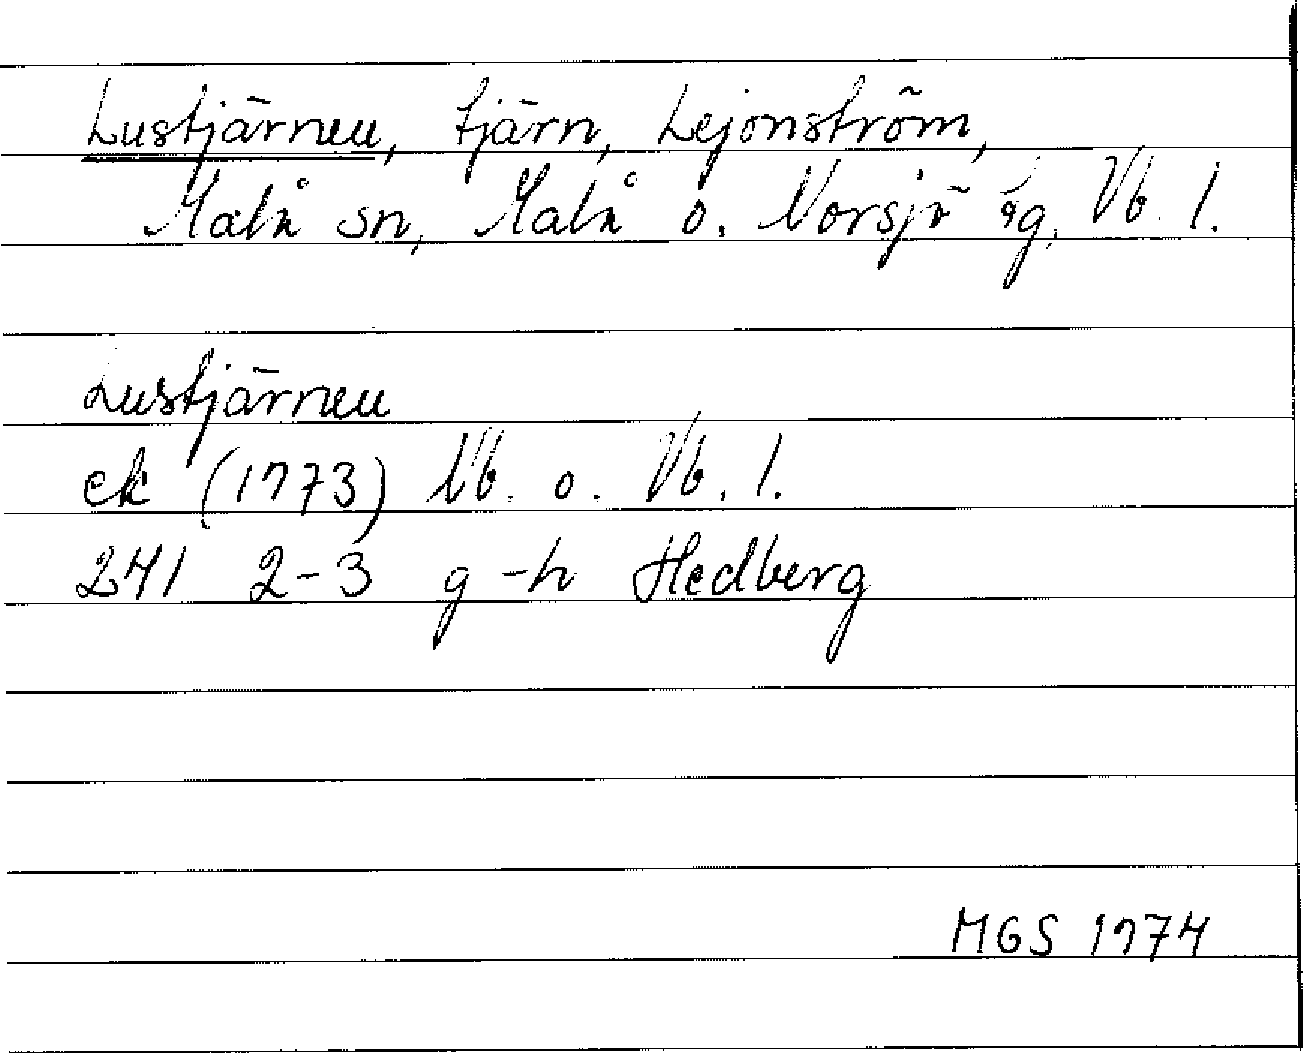 Lustjärnen, tjärn, Lejonström,
Malå sn, Malå o. Norsjö tg, Vb. l.
Lustjärnen
ek (1973) Nb. o. Vb. l.
241 2-3 g-h Hedberg
MGS 1974